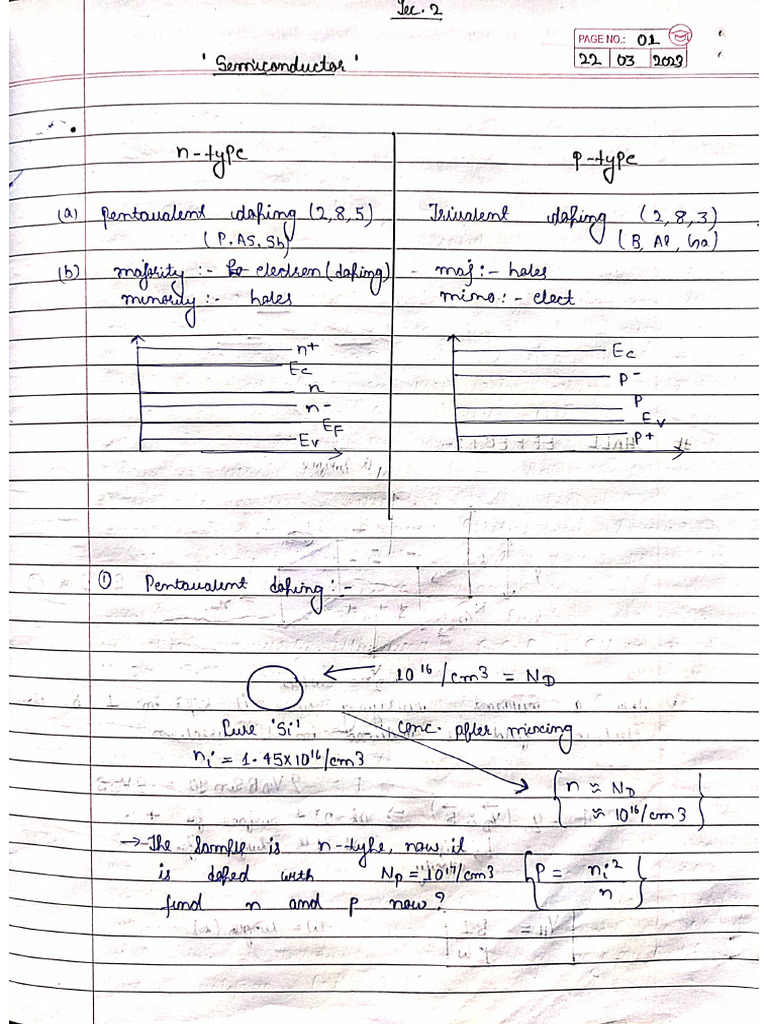 Lec. 2
PAGE NO.: 01
22 03 2023
'Semiconductor'
n-type
p-type
(a) Pentavalent doping (2,8,5)
(P, AS, Sb)
Trivalent doping (2,8,3)
(B, Al, Ga)
(b) majority :- electron (doping)
minority :- holes
maj :- holes
mino :- elect
n+
Ec
n
n-
EF
Ev
Ec
p-
p
Ev
p+
① Pentavalent doping :-
10^16/cm3 = ND
Pure 'Si'
ni = 1.45x10^16/cm3
conc. after mixing
n ≈ ND
≈ 10^16/cm3
→ The sample is n-type, now it
is doped with ND = 10^17/cm3
find n and p now?
P = ni^2/n